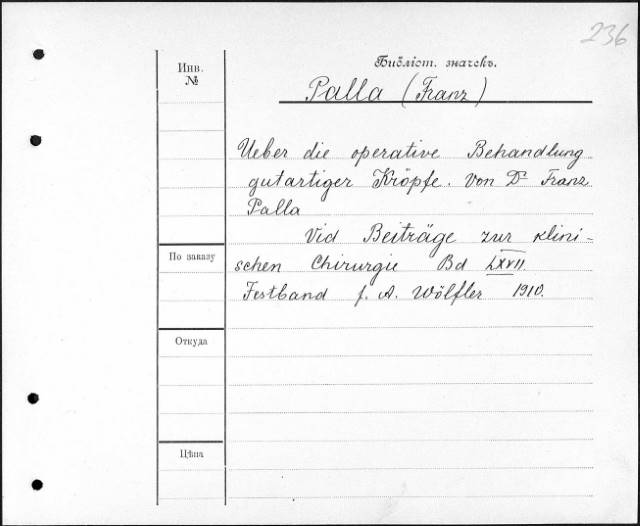 236
Библіот. значекъ.
Инв.
№
Palla (Franz)
Ueber die operative Behandlung
gutartiger Kröpfe. Von Dr Franz
Palla
Vid Beiträge zur klini-
schen Chirurgie Bd LXVII.
Festband f. A. Wölfler 1910.
По заказу
Откуда
Цѣна